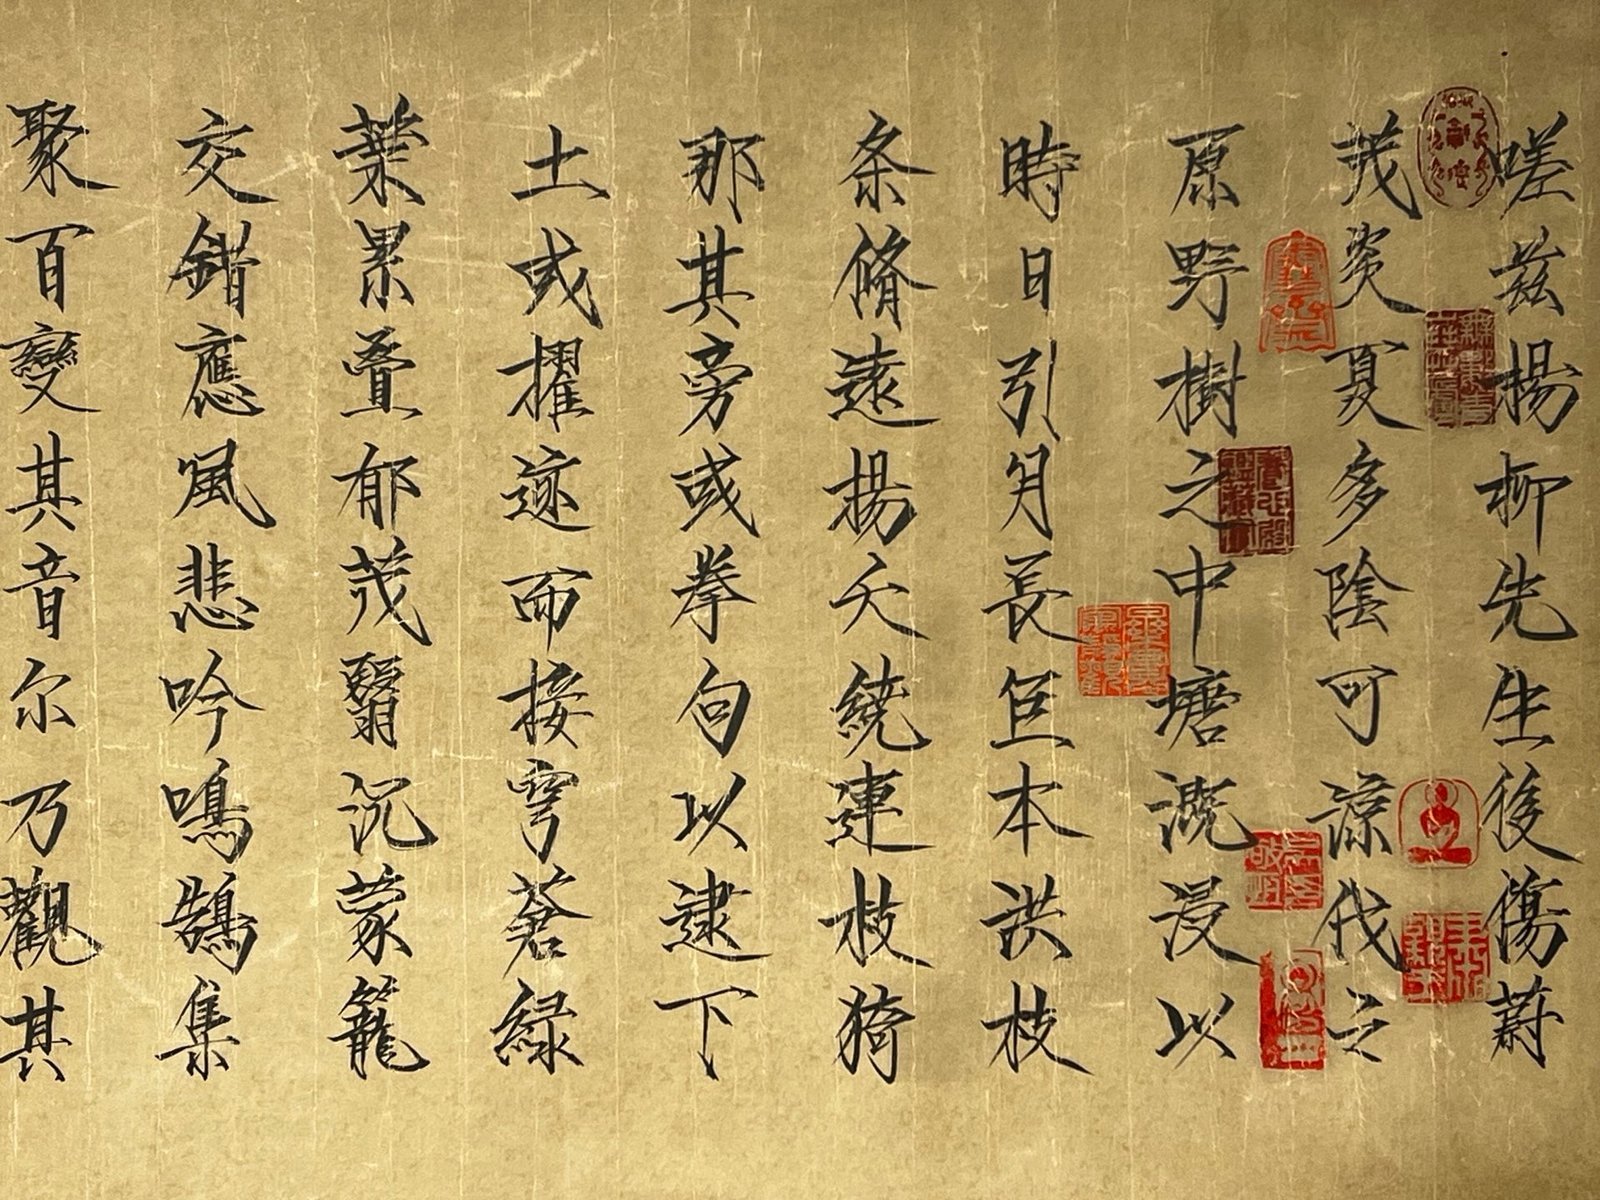 嗟兹揚柳先生後傷蔚
茂炎夏多陰可涼伐之
原野樹之中塘溉浸以
時日引月長巨本洪枝
条脩遠揚夭繞連枝猗
那其旁或拳句以逮下
土或擢迹而接穹蒼緑
葉累疊郁茂翳沉蒙籠
交錯應風悲吟鳴鵠集
聚百變其音尔乃觀其